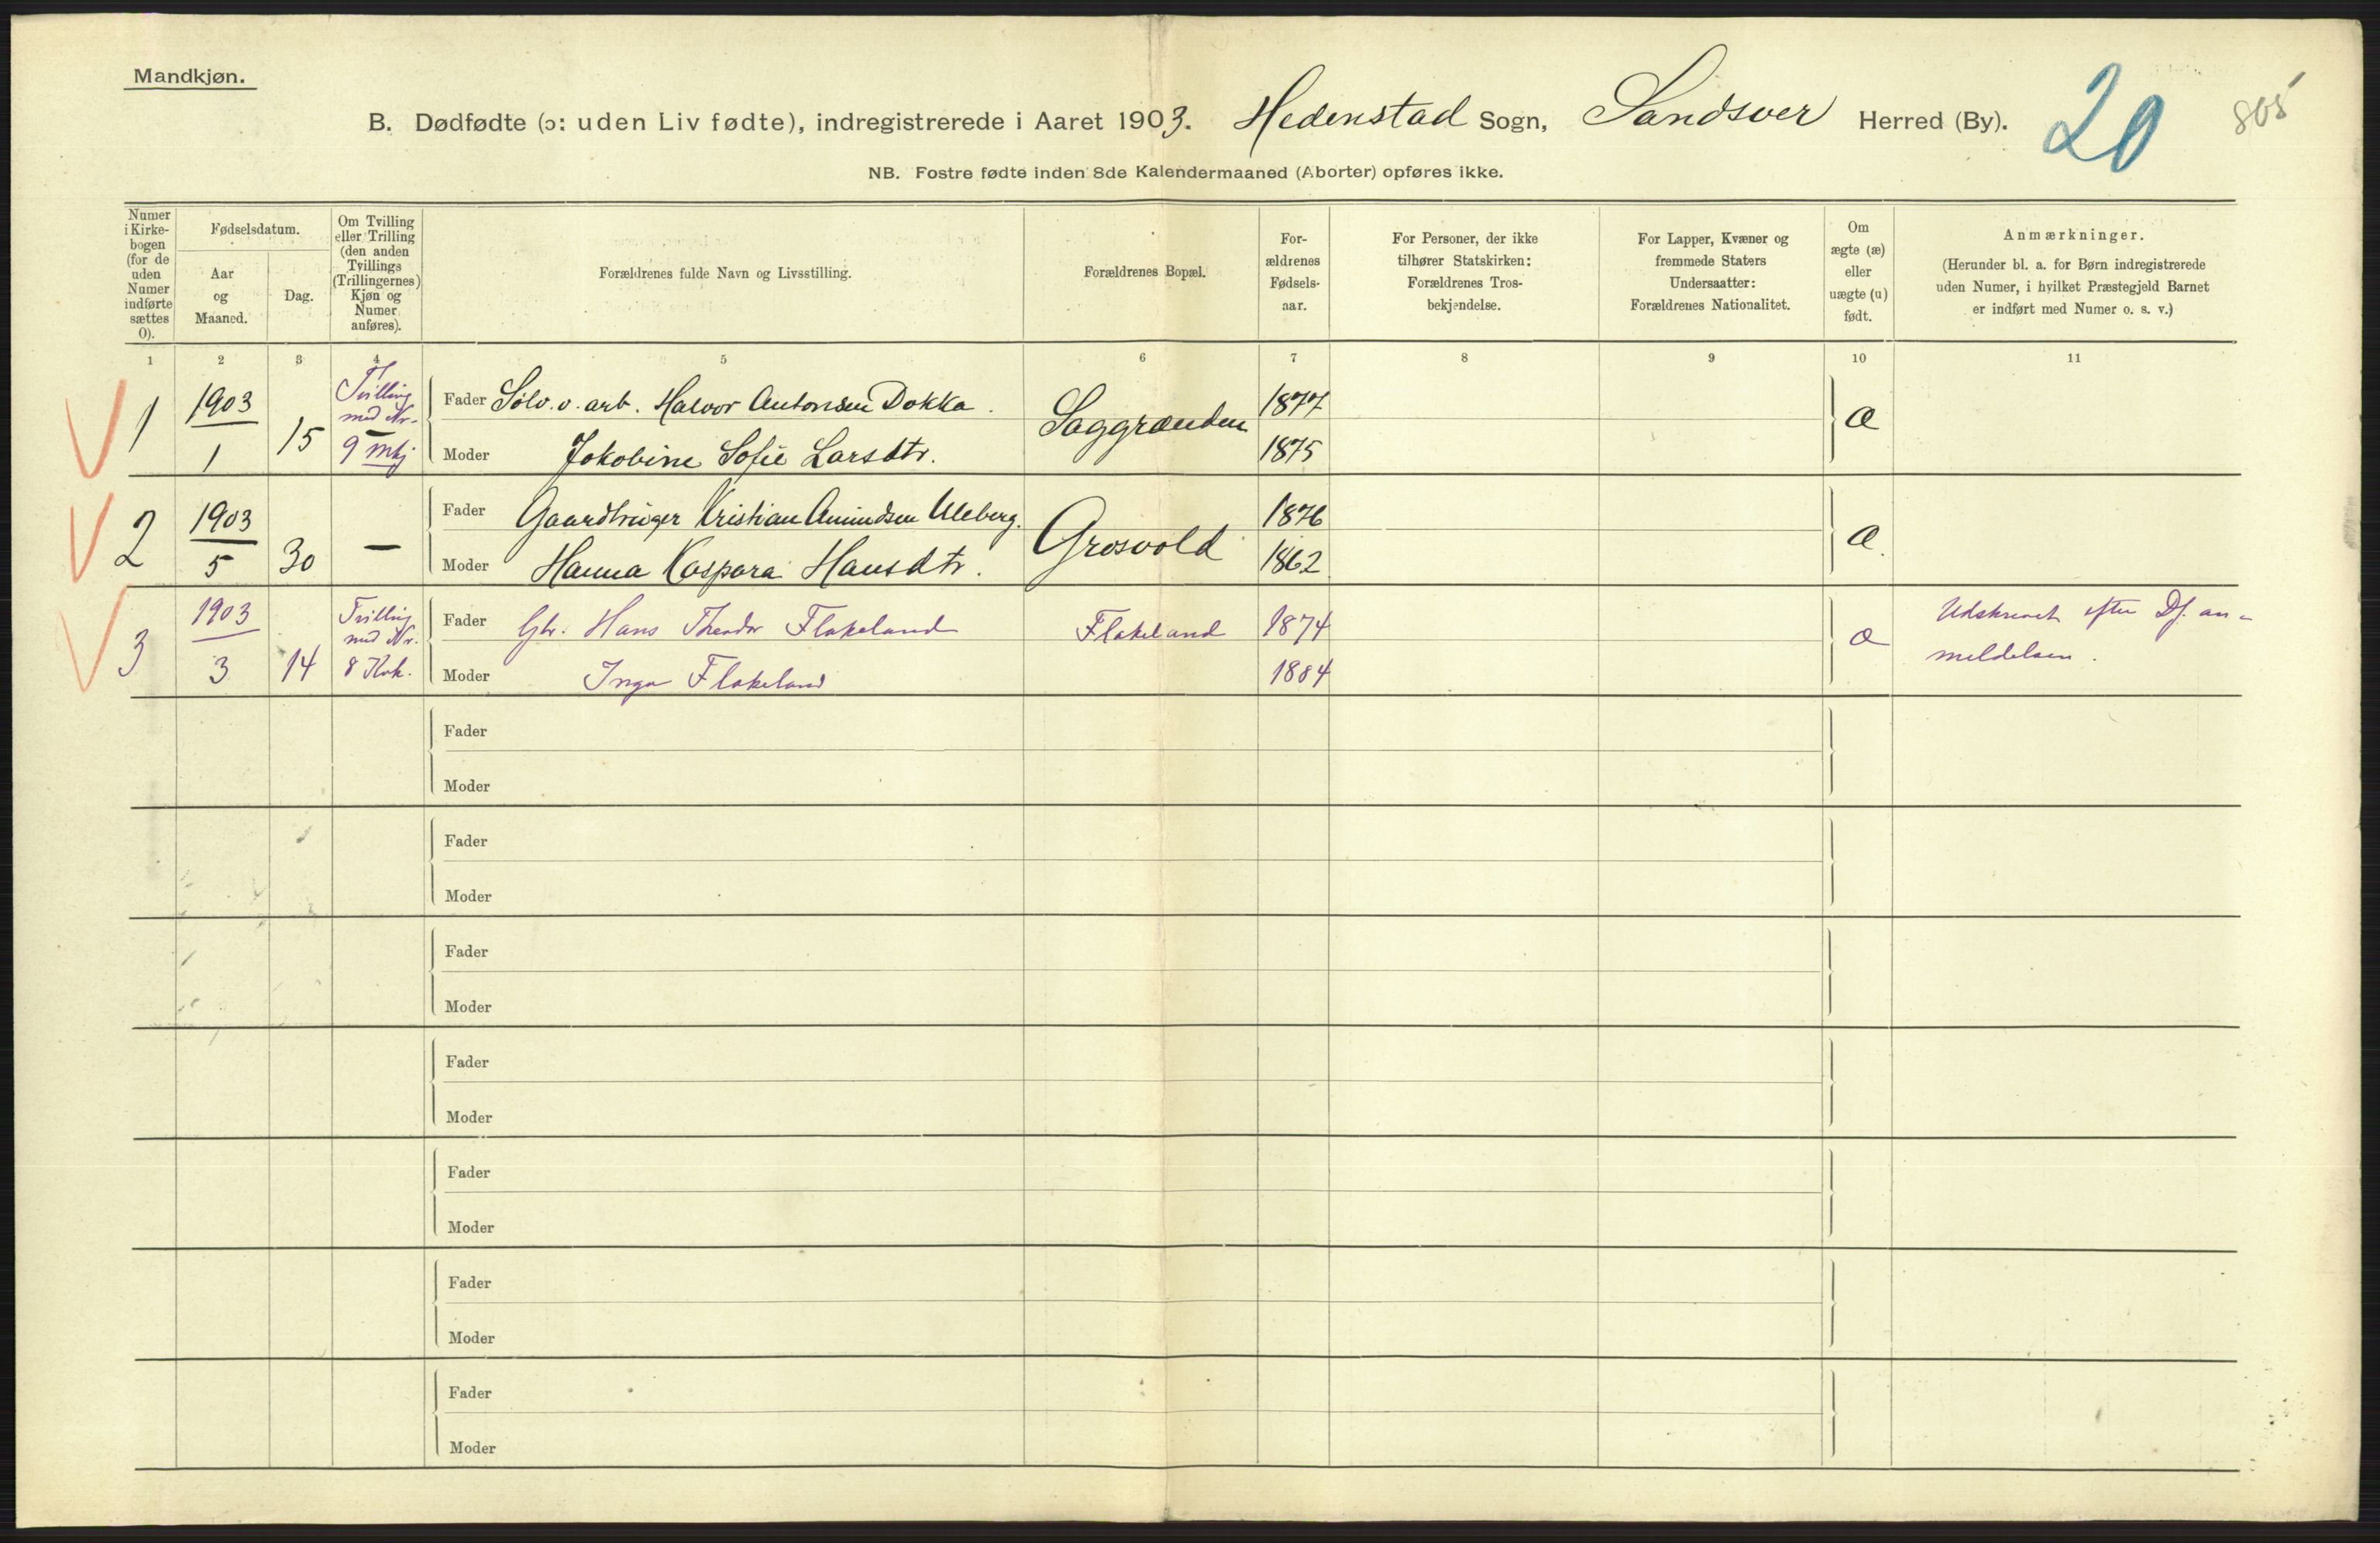 Mandkjøn.
B. Dødfødte (ɔ: uden Liv fødte), indregistrerede i Aaret 1903. Hedenstad Sogn, Sandsver Herred (By).
20
805
NB. Fostre fødte inden 8de Kalendermaaned (Aborter) opføres ikke.
Numer
i Kirke-
bogen
(for de
uden
Numer
indførte
sættes
0).
Fødselsdatum.
Aar
og
Maaned.
Dag.
Om Tvilling
eller Trilling
(den anden
Tvillings
(Trillingernes)
Kjøn og
Numer
anføres).
Forældrenes fulde Navn og Livsstilling.
Forældrenes Bopæl.
For-
ældrenes
Fødsels-
aar.
For Personer, der ikke
tilhører Statskirken:
Forældrenes Tros-
bekjendelse.
For Lapper, Kvæner og
fremmede Staters
Undersaatter:
Forældrenes Nationalitet.
Om
ægte (æ)
eller
uægte (u)
født.
Anmærkninger.
(Herunder bl. a. for Børn indregistrerede
uden Numer, i hvilket Præstegjeld Barnet
er indført med Numer o. s. v.)
1 2 3 4 5 6 7 8 9 10 11
1 1903 1 15
Tvilling
med Nr.
9 Mkj
Fader Sølv.v.arb. Halvor Antonsen Dokka. 1877
Saggrænden æ
Moder Jakobine Sofie Larsdtr. 1875
2 1903 5 30 —
Fader Gaardbruger Kristian Amundsen Uleberg. 1876
Grosvold æ.
Moder Hanna Kaspara Hansdtr. 1862
3 1903 3 14
Tvilling
med Nr.
8 Kvk.
Fader Gbr. Hans Theodor Flakeland Flakeland 1874
æ
Moder Inga Flakeland 1884
Udskrevet efter Df. an-
meldelsen.
Fader
Moder
Fader
Moder
Fader
Moder
Fader
Moder
Fader
Moder
Fader
Moder
Fader
Moder